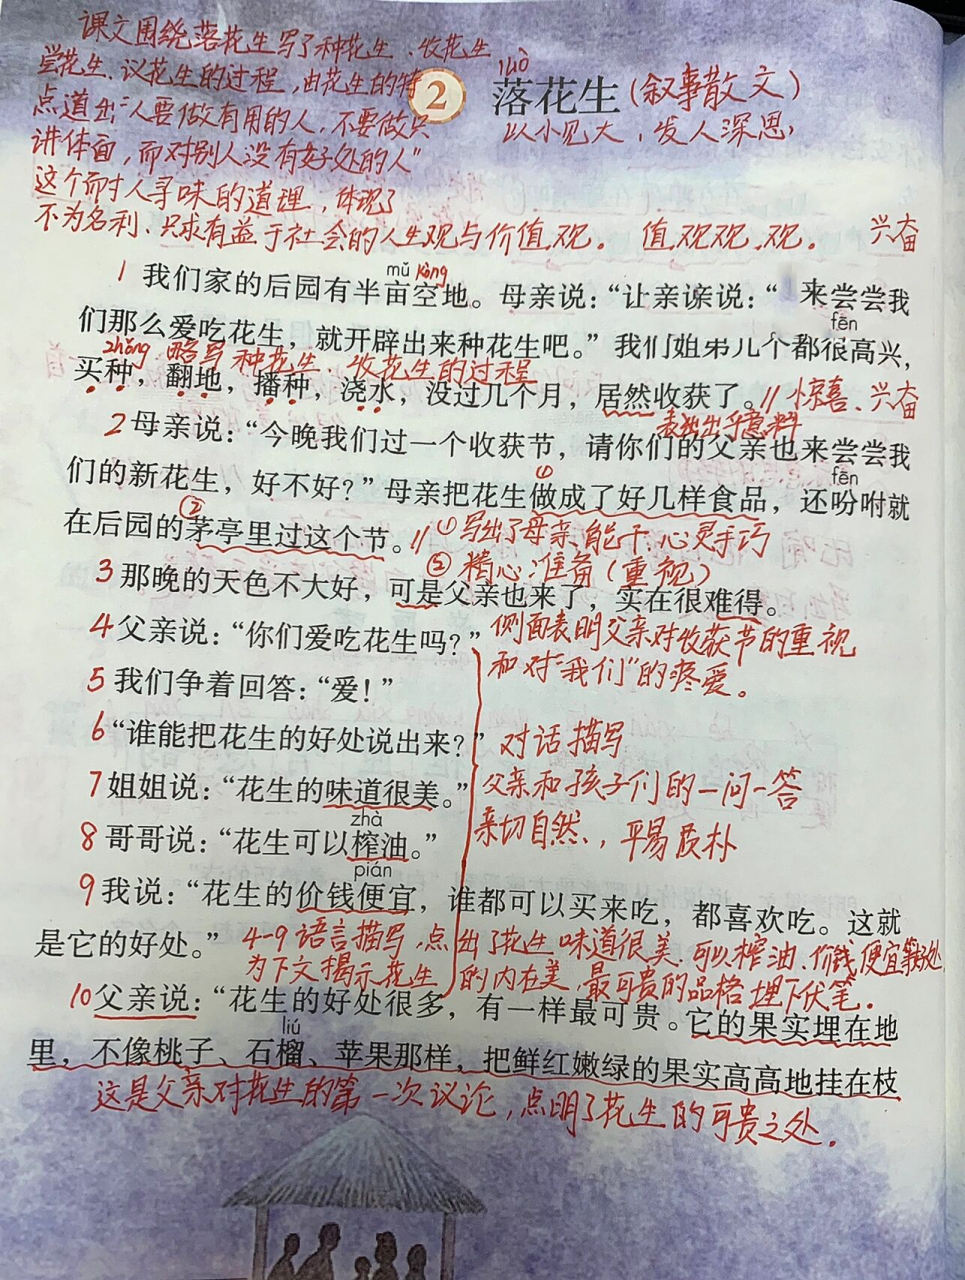 课文围绕落花生写了种花生、收花生
尝花生、议花生的过程，由花生的特
点道出“人要做有用的人，不要做只
讲体面，而对别人没有好处的人”
这个耐人寻味的道理，体现了
不为名利、只求有益于社会的人生观与价值观。值观观、观。 兴奋
luò
2 落花生(叙事散文)
以小见大，发人深思，
mǔ kòng
1 我们家的后园有半亩空地。母亲说：“让亲谅说：“ 来尝尝我
fēn
们那么爱吃花生，就开辟出来种花生吧。”我们姐弟几个都很高兴，
zhǒng 略写种花生、收花生的过程
买种，翻地，播种，浇水，没过几个月，居然收获了。// 惊喜、兴奋
表现出乎意料
2 母亲说：“今晚我们过一个收获节，请你们的父亲也来尝尝我
① fēn
们的新花生，好不好？”母亲把花生做成了好几样食品，还吩咐就
②
在后园的茅亭里过这个节。// ①写出了母亲能干、心灵手巧
②精心准备(重视)
3 那晚的天色不大好，可是父亲也来了，实在很难得。
4 父亲说：“你们爱吃花生吗？” 侧面表明父亲对收获节的重视
和对“我们”的疼爱。
5 我们争着回答：“爱！”
6 “谁能把花生的好处说出来？” 对话描写
7 姐姐说：“花生的味道很美。” 父亲和孩子们的一问一答
zhà
8 哥哥说：“花生可以榨油。” 亲切自然、，平易质朴
pián
9 我说：“花生的价钱便宜，谁都可以买来吃，都喜欢吃。这就
是它的好处。” 4-9语言描写，点出了花生味道很美、可以榨油、价钱便宜等好处
为下文揭示花生的内在美，最可贵的品格埋下伏笔.
10 父亲说：“花生的好处很多，有一样最可贵。它的果实埋在地
liú
里，不像桃子、石榴、苹果那样，把鲜红嫩绿的果实高高地挂在枝
这是父亲对花生的第一次议论，点明了花生的可贵之处.